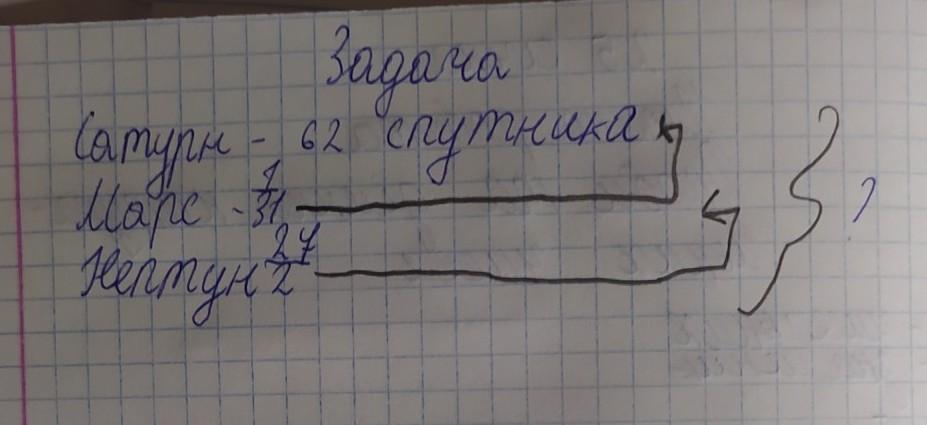 Задача
Сатурн - 62 спутника
Марс - 1/31
Нептун 27/2
?